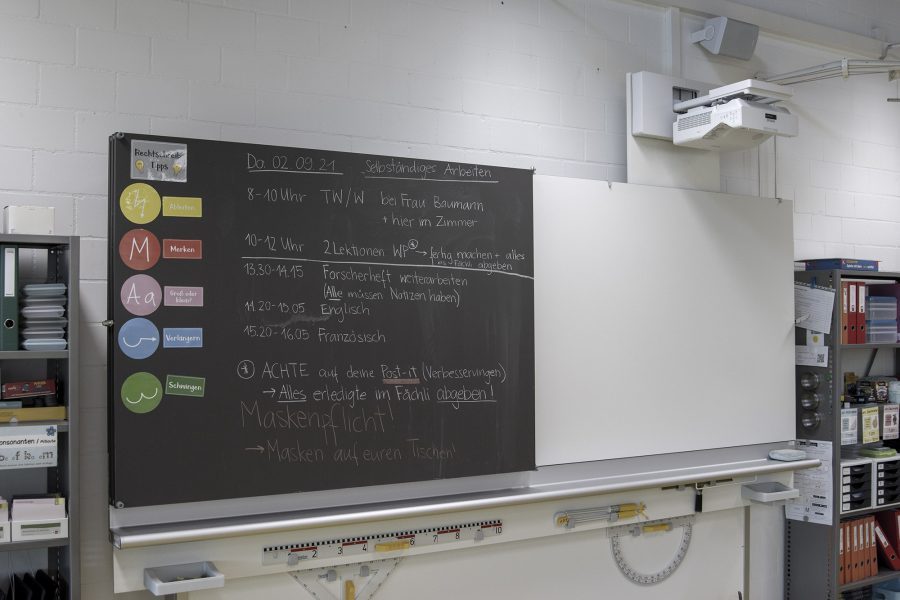 Rechtschreib
Tipps
Ableiten
M
Merken
Aa
Groß oder
klein?
Verlängern
Schwingen
Do, 02.09.21 Selbständiges Arbeiten
8-10 Uhr TW/W bei Frau Baumann
+ hier im Zimmer
10-12 Uhr 2 Lektionen WP* → fertig machen + alles
ins Fächli abgeben
13.30-14.15 Forscherheft weiterarbeiten
(Alle müssen Notizen haben)
14.20-15.05 Englisch
15.20-16.05 Französisch
* ACHTE auf deine Post-it (Verbesserungen)
→ Alles erledigte im Fächli abgeben!
Maskenpflicht!
→ Masken auf euren Tischen!
onsonanten /
2 3 4 6 7 8 10